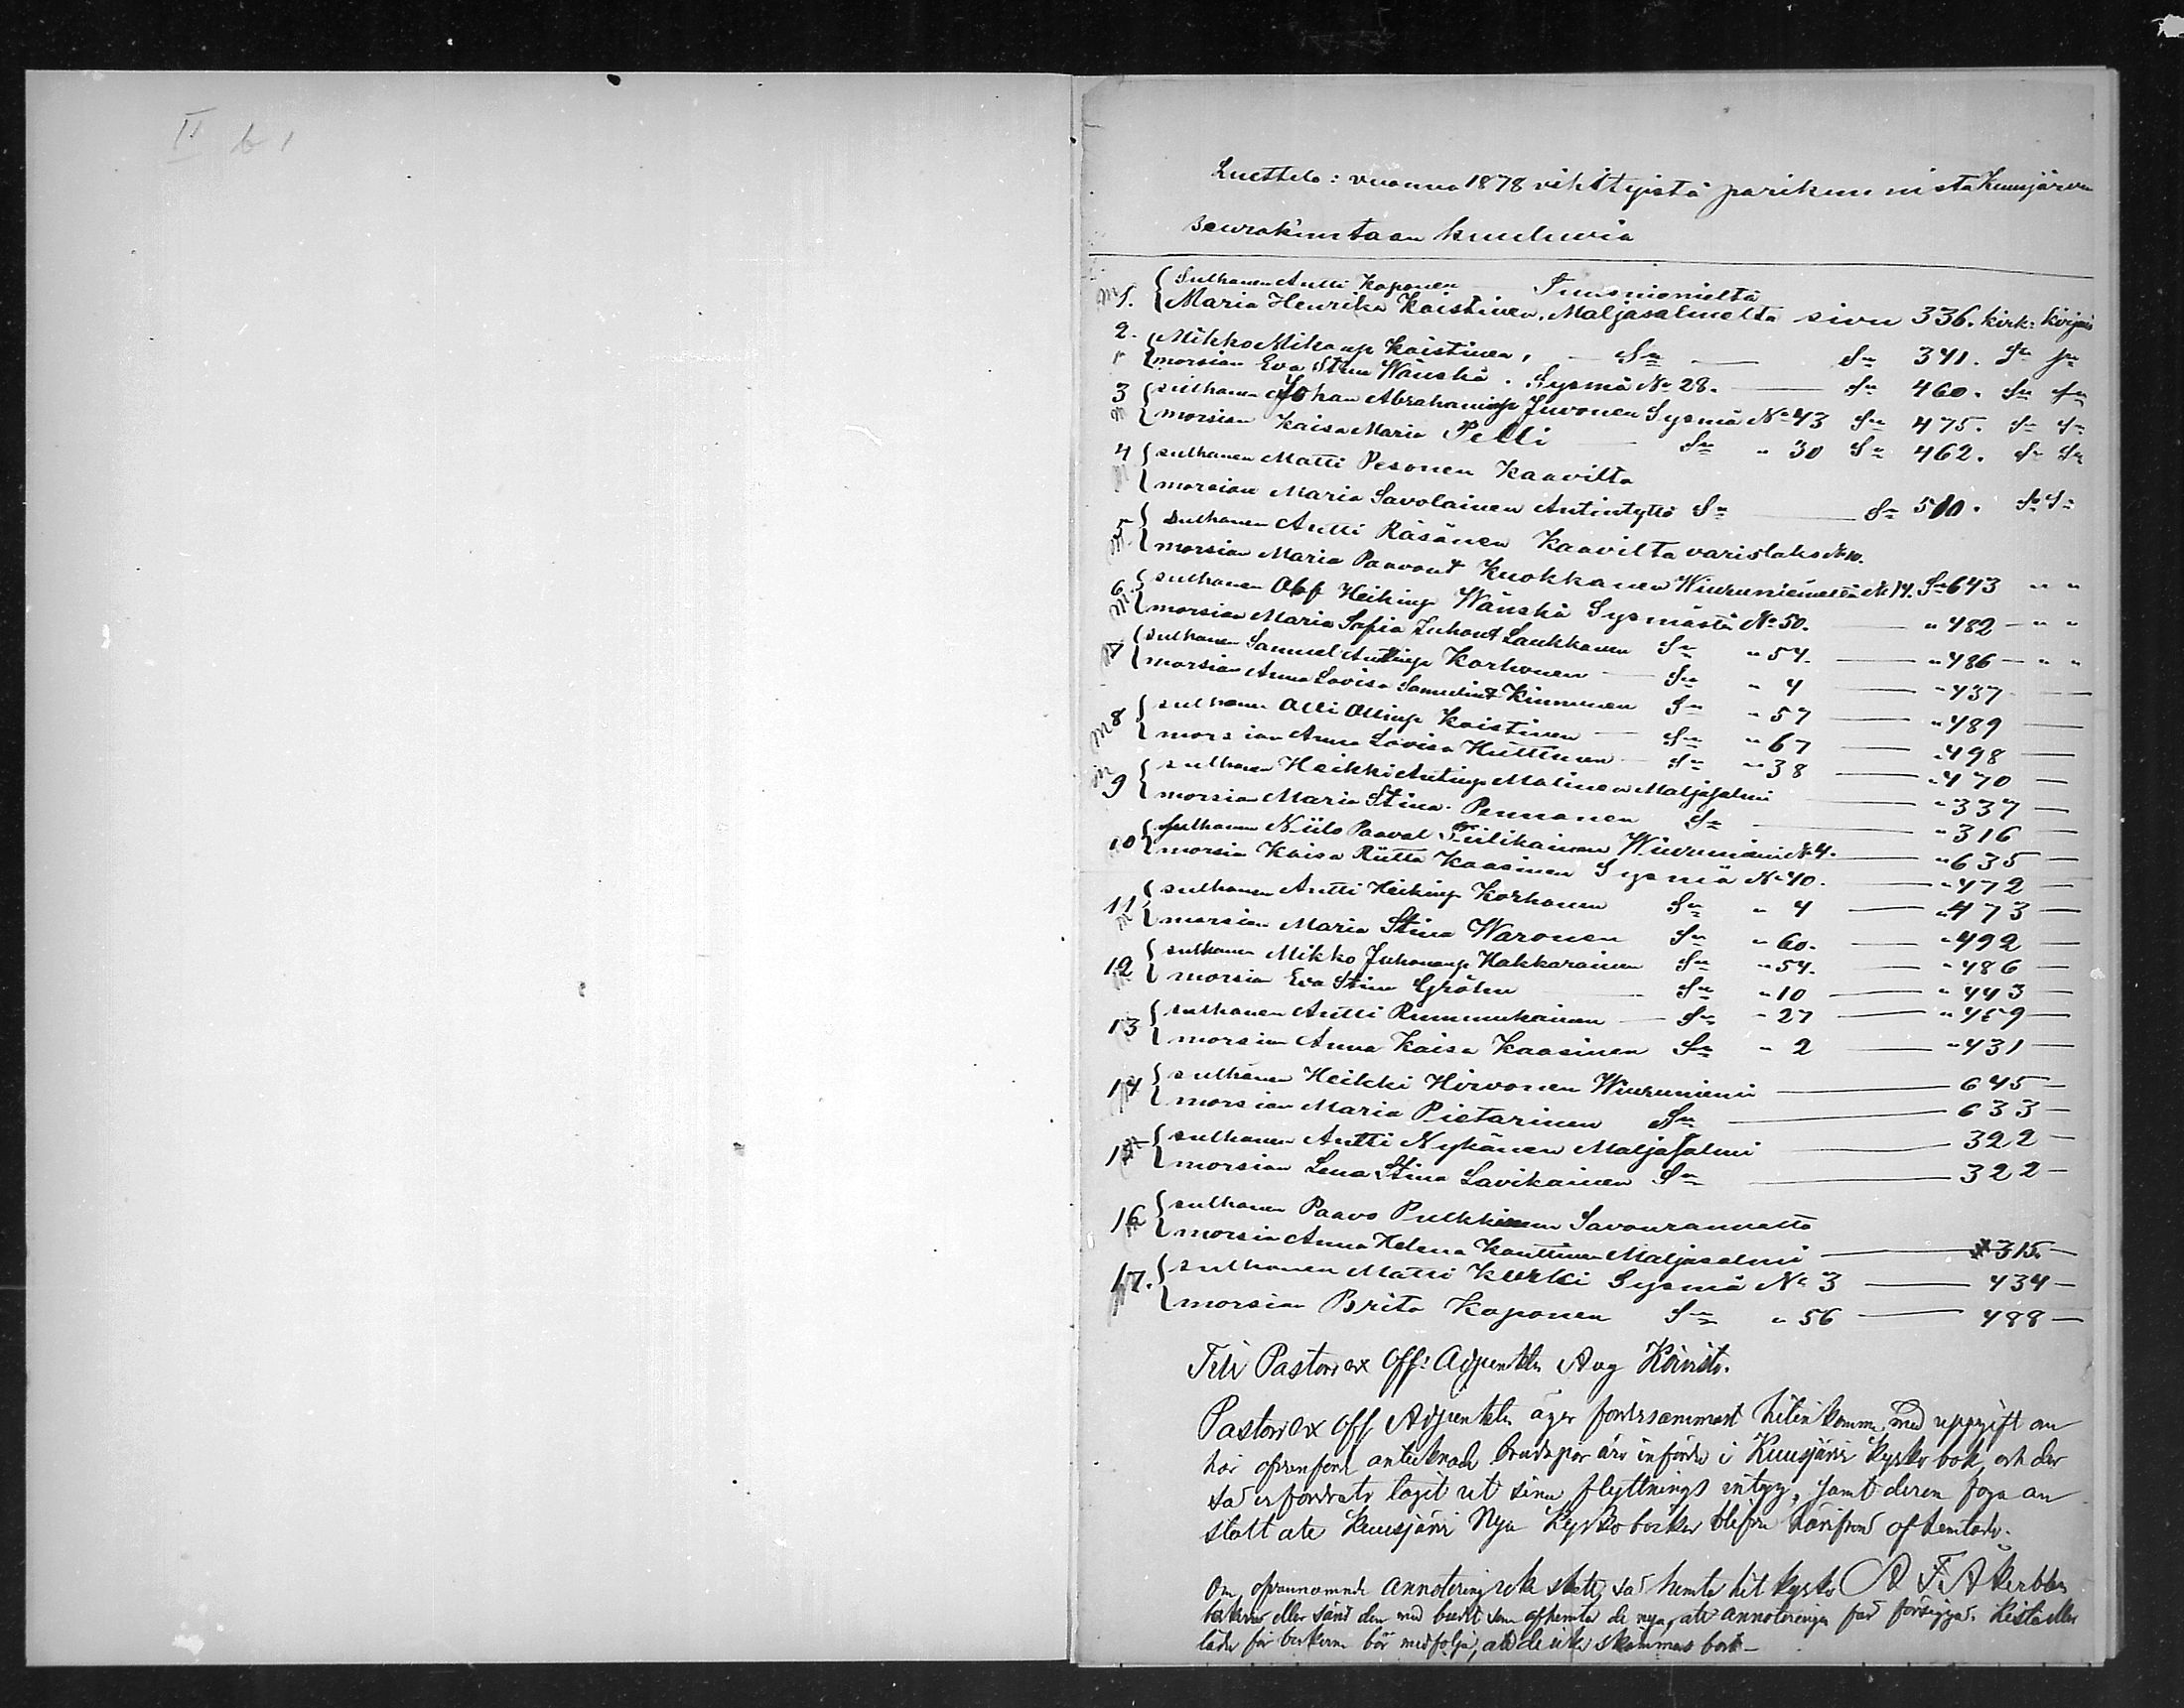 II b 1
Luettelo: vuonna 1878 vihityistä parikunnista Kuusjärven
seurakuntaan kuuluvia
1. Sulhanen Antti Koponen Tuusniemeltä
Maria Henrika Koistinen, Maljasalmelta sivu 336. kirk: kirjas
2. Mikko Mikonp Koistinen, Sn Sn 341. Sn Sn
morsian Eva Stina Wänskä. Sysmä No 28. Sn 460. Sn Sn
3 sulhanen Johan Abrahaminp Juvonen Sysmä No 43 Sn 475. Sn Sn
morsian Kaisa Maria Pelli Sn " 30 Sn 462. Sn Sn
4 sulhanen Matti Pesonen Kaavilta
morsian Maria Savolainen Antintyttö Sn Sn 510. Sn Sn
5 Sulhanen Antti Räsänen Kaavilta varislaks No 10.
morsian Maria Paavont Kuokkanen Wiuruniemestä No 14. Sn 643 " "
6 sulhanen Olof Heikinp Wänskä Sysmästä No 50. " 482 " "
morsian Maria Sofia Juhont Laukkanen Sn " 54. " 486 " "
7 sulhanen Samuel Antinp Korhonen Sn " 4 " 437
morsian Anna Lovisa Samulint Kinnunen Sn " 57 " 489
8 sulhanen Olli Ollinp Koistinen Sn " 67 " 498
morsian Anna Lovisa Huttunen Sn " 38 " 470
9 sulhanen Heikki Antinp Malinen Maljasalmi " 337
morsian Maria Stina Pennanen Sn " 316
10 sulhanen Niilo Paaval Tiilikainen Wiuruniemi No 4. " 635
morsian Kaisa Riitta Kaasinen Sysmä No 40. " 472
11 sulhanen Antti Heikinp Korhonen Sn " 4 " 473
morsian Maria Stina Waronen Sn " 60. " 492
12 sulhanen Mikko Juhonanp Hakkarainen Sn " 54. " 486
morsian Eva Stina Gröhn Sn " 10 " 443
13 sulhanen Antti Rummukainen Sn " 27 " 459
morsian Anna Kaisa Kaasinen Sn " 2 " 431
14 sulhanen Heikki Hirvonen Wiuruniemi 645
morsian Maria Pietarinen Sn 633
15 sulhanen Antti Nykänen Maljasalmi 322
morsian Lena Stina Lavikainen Sn 322
16 sulhanen Paavo Pulkkinen Savonrannalta
morsian Anna Helena Kauttinen Maljasalmi 315.
17. sulhanen Matti Kurki Sysmä No 3 434
morsian Brita Koponen Sn " 56 488
Till Pastor ex Off: Adjunkten Aug Koivisto.
Pastor ex Off Adjunkten äger fordersammast hit inkomma med uppgift om
här ofvanföre antecknade brudpar äro införde i Kuusjärvi kyrko bok, och der
så erfordrats tagit ut sina flyttnings intyg, samt deren foga an
stalt att Kuusjärvi Nya Kyrkoböcker blefve härifrån afhemtade.
A F Åkerblom
Om ofvannämnde annotering icke skett, så hemta hit kyrko
böckerna eller sänd dem med budet som afhemtar de nya, att annoteringen får försiggå. Kista eller
låda för böckerna bör medfölja, att de icke skämmas bort